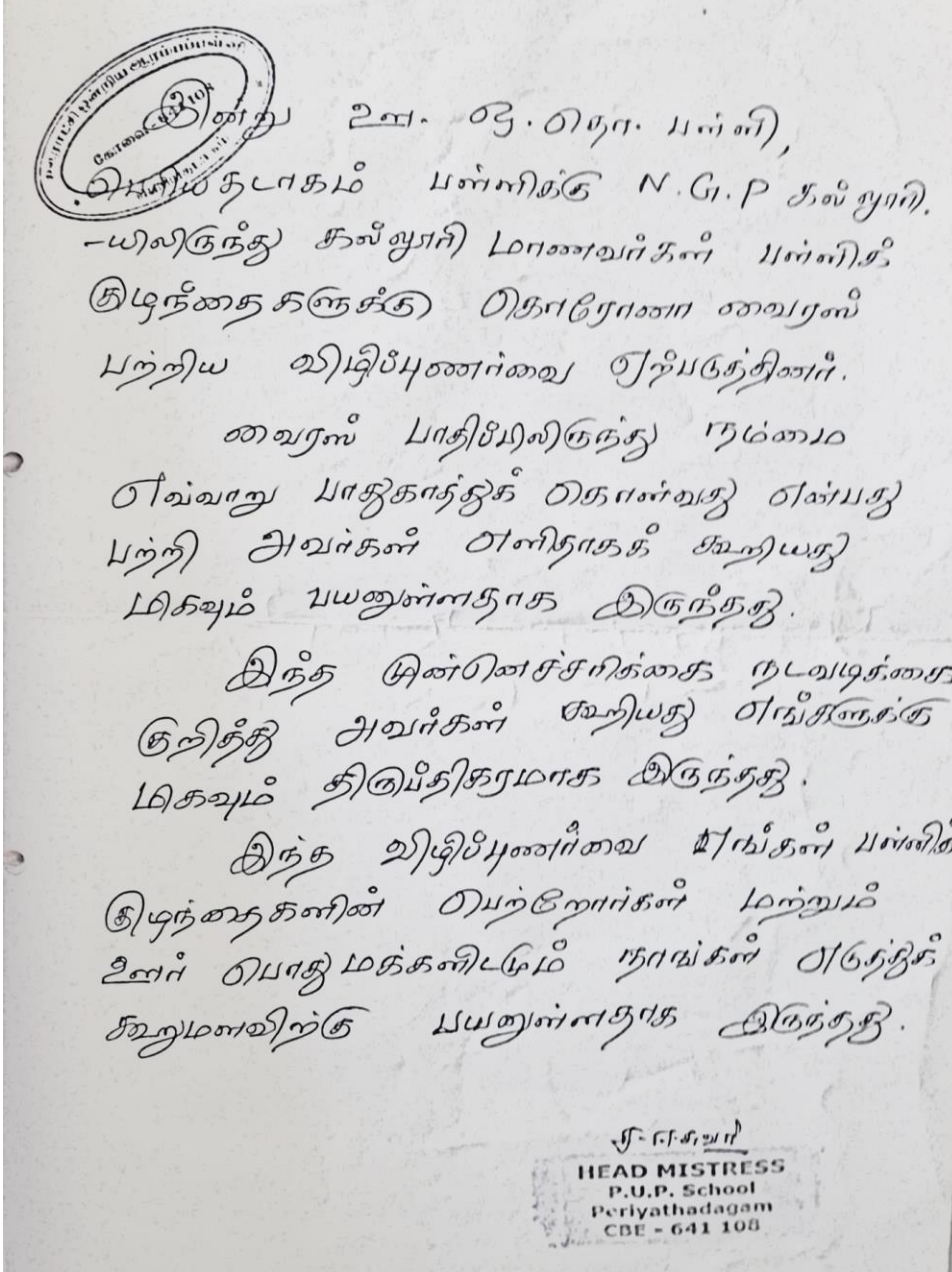 ஊராட்சி ஒன்றிய ஆரம்பப்பள்ளி
கோவை - 641108
இன்று ஊ. ஒ. தொ. பள்ளி,
பெரியதடாகம் பள்ளிக்கு N.G.P கல்லூரி.
-யிலிருந்து கல்லூரி மாணவர்கள் பள்ளிக்
குழந்தைகளுக்கு கொரோனா வைரஸ்
பற்றிய விழிப்புணர்வை ஏற்படுத்தினர்.
வைரஸ் பாதிப்பிலிருந்து நம்மை
எவ்வாறு பாதுகாத்துக் கொள்வது என்பது
பற்றி அவர்கள் எளிதாகக் கூறியது
மிகவும் பயனுள்ளதாக இருந்தது.
இந்த முன்னெச்சரிக்கை நடவடிக்கை
குறித்து அவர்கள் கூறியது எங்களுக்கு
மிகவும் திருப்திகரமாக இருந்தது.
இந்த விழிப்புணர்வை எங்கள் பள்ளிக்
குழந்தைகளின் பெற்றோர்கள் மற்றும்
ஊர் பொது மக்களிடமும் நாங்கள் எடுத்துக்
கூறுமளவிற்கு பயனுள்ளதாக இருந்தது.
HEAD MISTRESS
P.U.P. School
Periyathadagam
CBE - 641 108